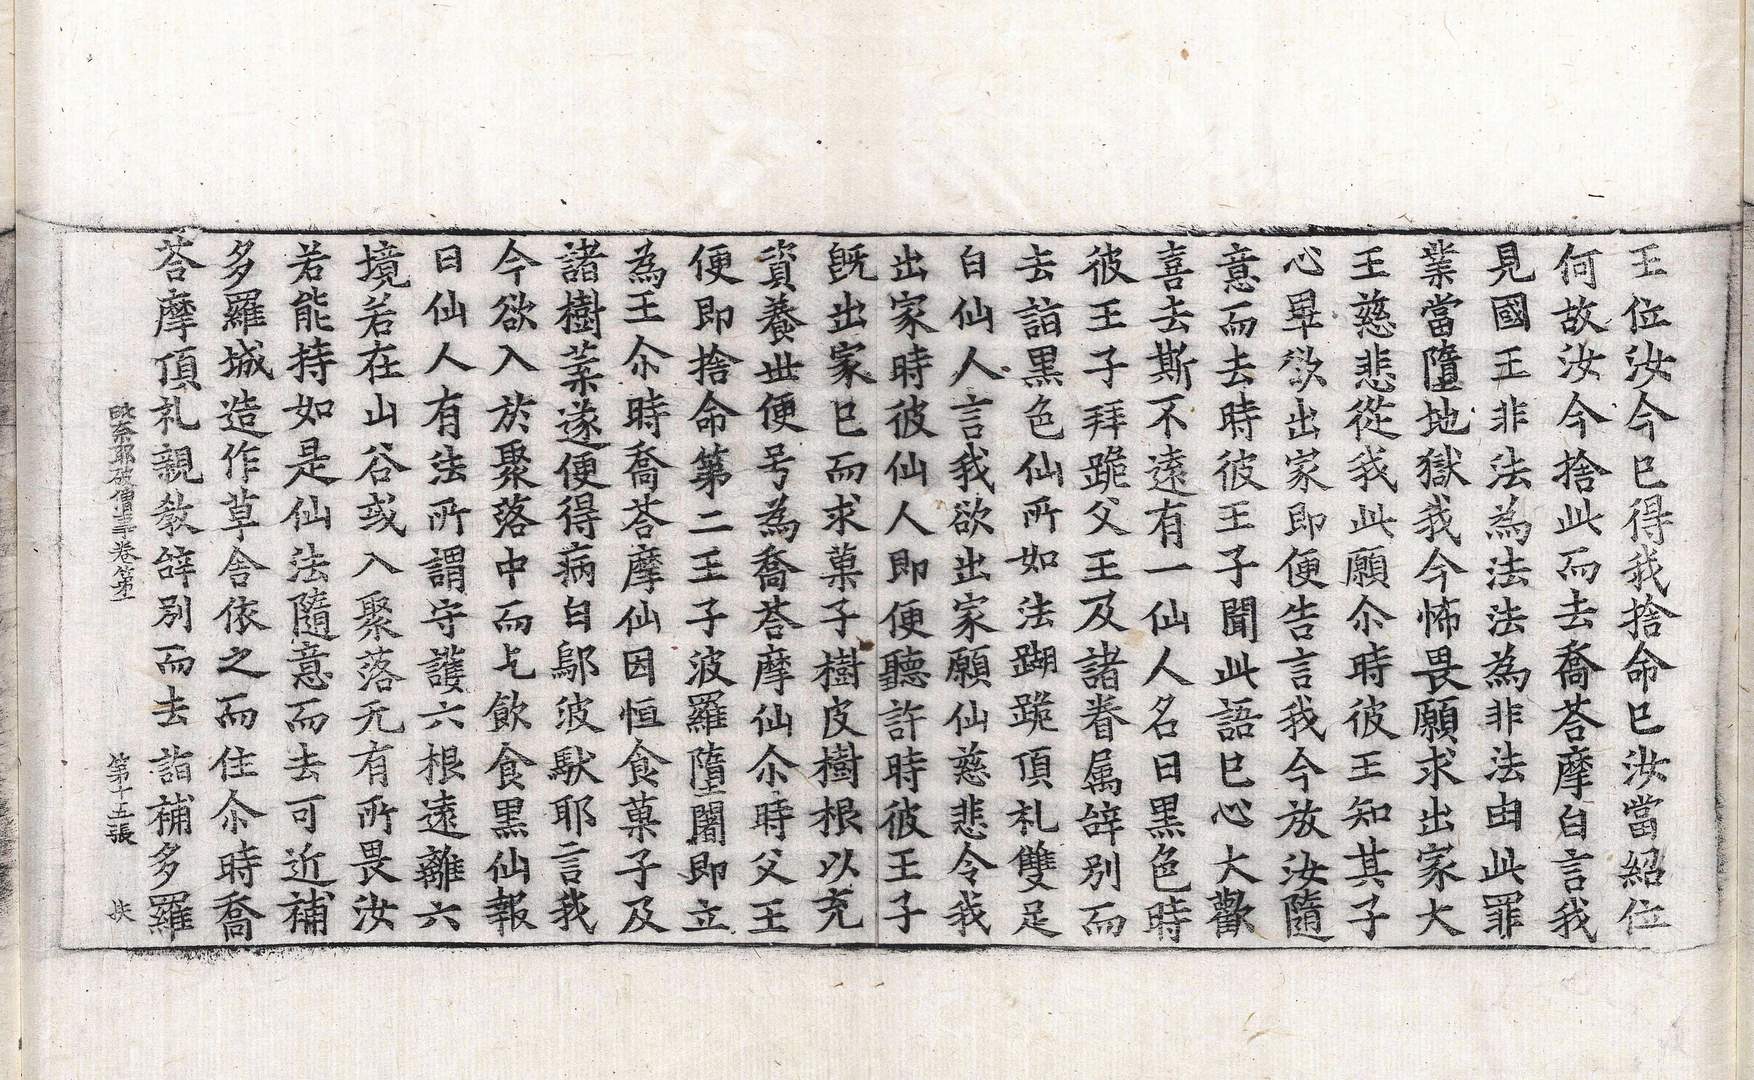 王位汝今已得我捨命已汝當紹位
何故汝今捨此而去喬荅摩白言我
見國王非法為法法為非法由此罪
業當墮地獄我今怖畏願求出家大
王慈悲從我此願尒時彼王知其子
心畢欲出家即便告言我今放汝隨
意而去時彼王子聞此語已心大歡
喜去斯不遠有一仙人名曰黑色時
彼王子拜跪父王及諸眷属辝別而
去詣黑色仙所如法蹦跪頂礼雙足
白仙人言我欲出家願仙慈悲令我
出家時彼仙人即便聽許時彼王子
既出家已而求菓子樹皮樹根以充
資養世便号為喬荅摩仙尒時父王
便即捨命第二王子波羅墮闍即立
為王尒時喬荅摩仙因恒食菓子及
諸樹葉遂便得病白鄔波馱耶言我
今欲入於聚落中而乞飲食黑仙報
曰仙人有法所謂守護六根遠離六
境若在山谷或入聚落无有所畏汝
若能持如是仙法隨意而去可近補
多羅城造作草舍依之而住尒時喬
荅摩頂礼親教辝別而去詣補多羅
毗奈耶破僧事卷第一 第十五張 挾